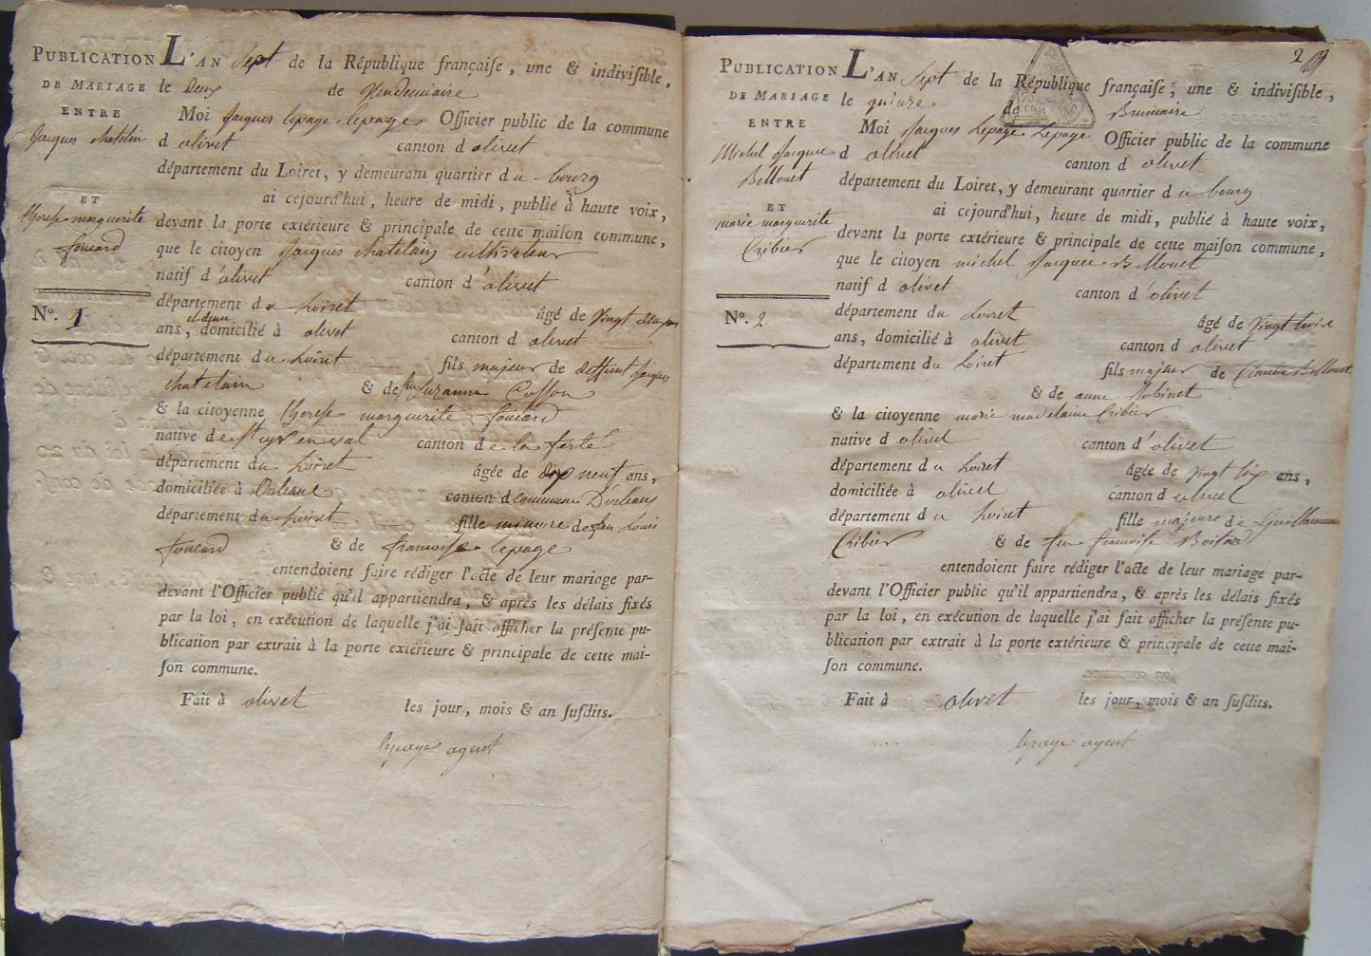 PUBLICATION
DE MARIAGE
ENTRE
Jacques chatelin
ET
therese marguerite
foucard
Nº. 1
L'AN Sept de la République françaiſe, une & indiviſible,
le Deux de Vendemiaire
Moi Jacques lepage lepage Officier public de la commune
d olivet canton d olivet
département du Loiret, y demeurant quartier du bourg
ai cejourd'hui, heure de midi, publié à haute voix,
devant la porte extérieure & principale de cette maiſon commune,
que le citoyen Jacques chatelain cultivateur
natif d'olivet canton d'olivet
département du Loiret âgé de vingt
ans, domicilié à olivet canton d olivet
département du Loiret fils majeur de deffunt Jacques
chatelain & de Suzanne Cosson
& la citoyenne therese marguerite foucard
native de canton de la ferté
département du Loiret âgée de dix neuf ans,
domiciliée à Orleans canton d commune D'orleans
département du Loiret fille mineure de feu Louis
foucard & de francoise lepage
entendoient faire rédiger l'acte de leur mariage par-
devant l'Officier public qu'il appartiendra, & après les délais fixés
par la loi, en exécution de laquelle j'ai fait afficher la préſente pu-
blication par extrait à la porte extérieure & principale de cette mai-
ſon commune.
Fait à olivet les jour, mois & an ſuſdits.
lepage agent
2
PUBLICATION
DE MARIAGE
ENTRE
Michel Jacques
Bellouet
ET
marie marguerite
Cribier
Nº. 2
L'AN Sept de la République françaiſe, une & indiviſible,
le quinze de Brumaire
Moi Jacques Lepage Lepage Officier public de la commune
d olivet canton d olivet
département du Loiret, y demeurant quartier du bourg
ai cejourd'hui, heure de midi, publié à haute voix,
devant la porte extérieure & principale de cette maiſon commune,
que le citoyen michel Jacques Bellouet
natif d olivet canton d'olivet
département du Loiret âgé de vingt
ans, domicilié à olivet canton d olivet
département du Loiret fils majeur de
& de anne Robinet
& la citoyenne marie madelaine Cribier
native d olivet canton d'olivet
département du Loiret âgée de vingt six ans,
domiciliée à olivet canton d olivet
département du Loiret fille majeure de Guillaume
Cribier & de feu francoise
entendoient faire rédiger l'acte de leur mariage par-
devant l'Officier public qu'il appartiendra, & après les délais fixés
par la loi, en exécution de laquelle j'ai fait afficher la préſente pu-
blication par extrait à la porte extérieure & principale de cette mai-
ſon commune.
Fait à olivet les jour, mois & an ſuſdits.
lepage agent